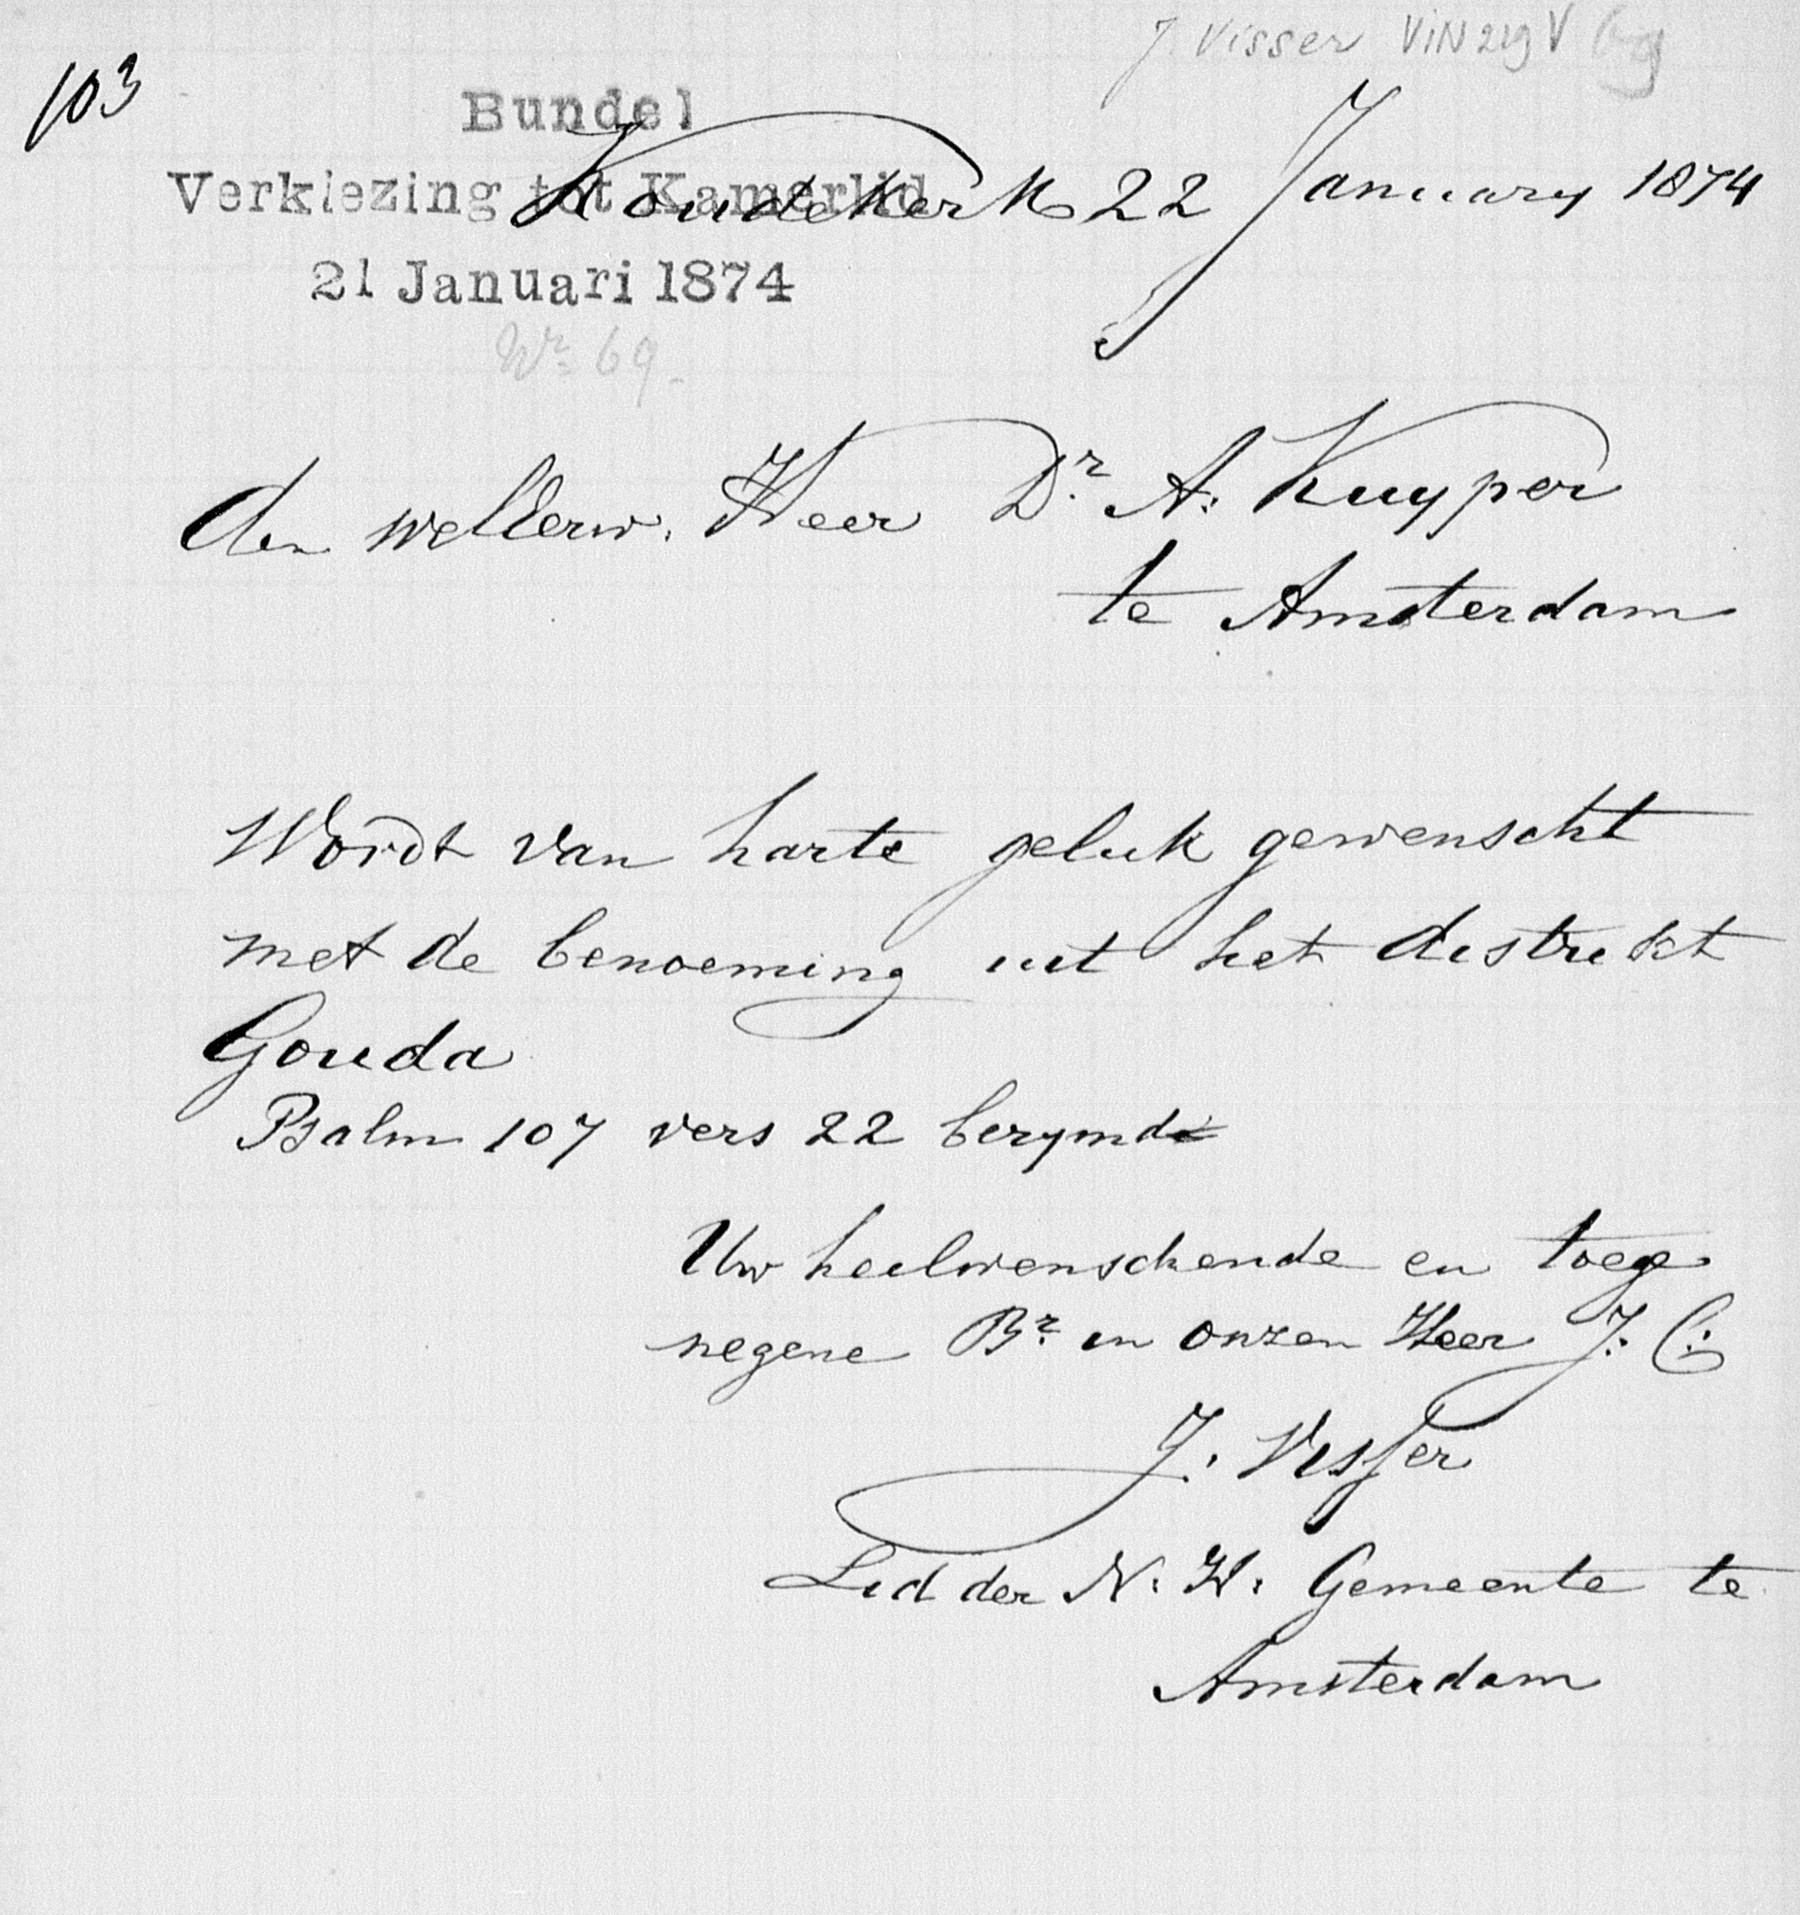 J. Visser
103
Bundel
Verkiezing tot Kamerlid
Koudekerk 22 January 1874
21 Januari 1874
No 69.
den welEerw. Heer Dr. A. Kuyper
te Amsterdam
Wordt van harte geluk gewenscht
met de benoeming uit het distrikt
Gouda
Psalm 107 vers 22 berymd
Uw heilwenschende en toege
negene Br. in onzen Heer J. C.
J. Visser
Lid der N. H. Gemeente te
Amsterdam